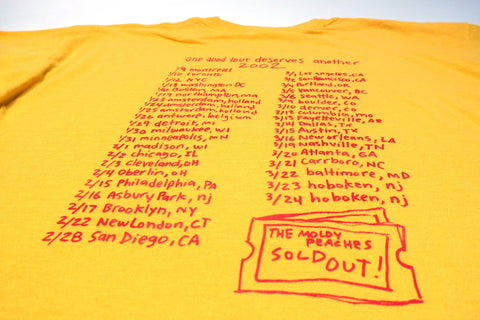 one good tour deserves another
2002
1/9 montreal
1/10 toronto
1/12 NYC
1/13 washington DC
Boston, MA
1/19 northampton, ma
1/23 amsterdam, holland
1/24 amsterdam, holland
1/25 holland
1/26 antwerp, belgium
1/29 detroit, mi
1/30 milwaukee, WI
1/31 minneapolis, MN
2/1 madison, wi
2/2 chicago, IL
2/3 cleveland, oH
2/4 Oberlin, oH
2/15 Philadelphia, PA
2/16 Asbury Park, nj
2/17 Brooklyn, NY
2/22 New London, CT
2/28 San Diego, CA
3/1 Los angeles, CA
3/2 San Francisco, CA
3/4 Portland, OR
3/5 Vancouver, BC
3/6 Seattle, WA
3/9 boulder, CO
3/10 denver, CO
3/13 Columbia, mo
3/13 Fayetteville, AR
3/14 Dallas, TX
3/15 Austin, TX
3/16 New orleans, LA
3/19 Nashville, TN
3/20 Atlanta, GA
3/21 Carrboro, NC
3/22 baltimore, MD
3/23 hoboken, nj
3/24 hoboken, nj
THE MOLDY
PEACHES
SOLD OUT!